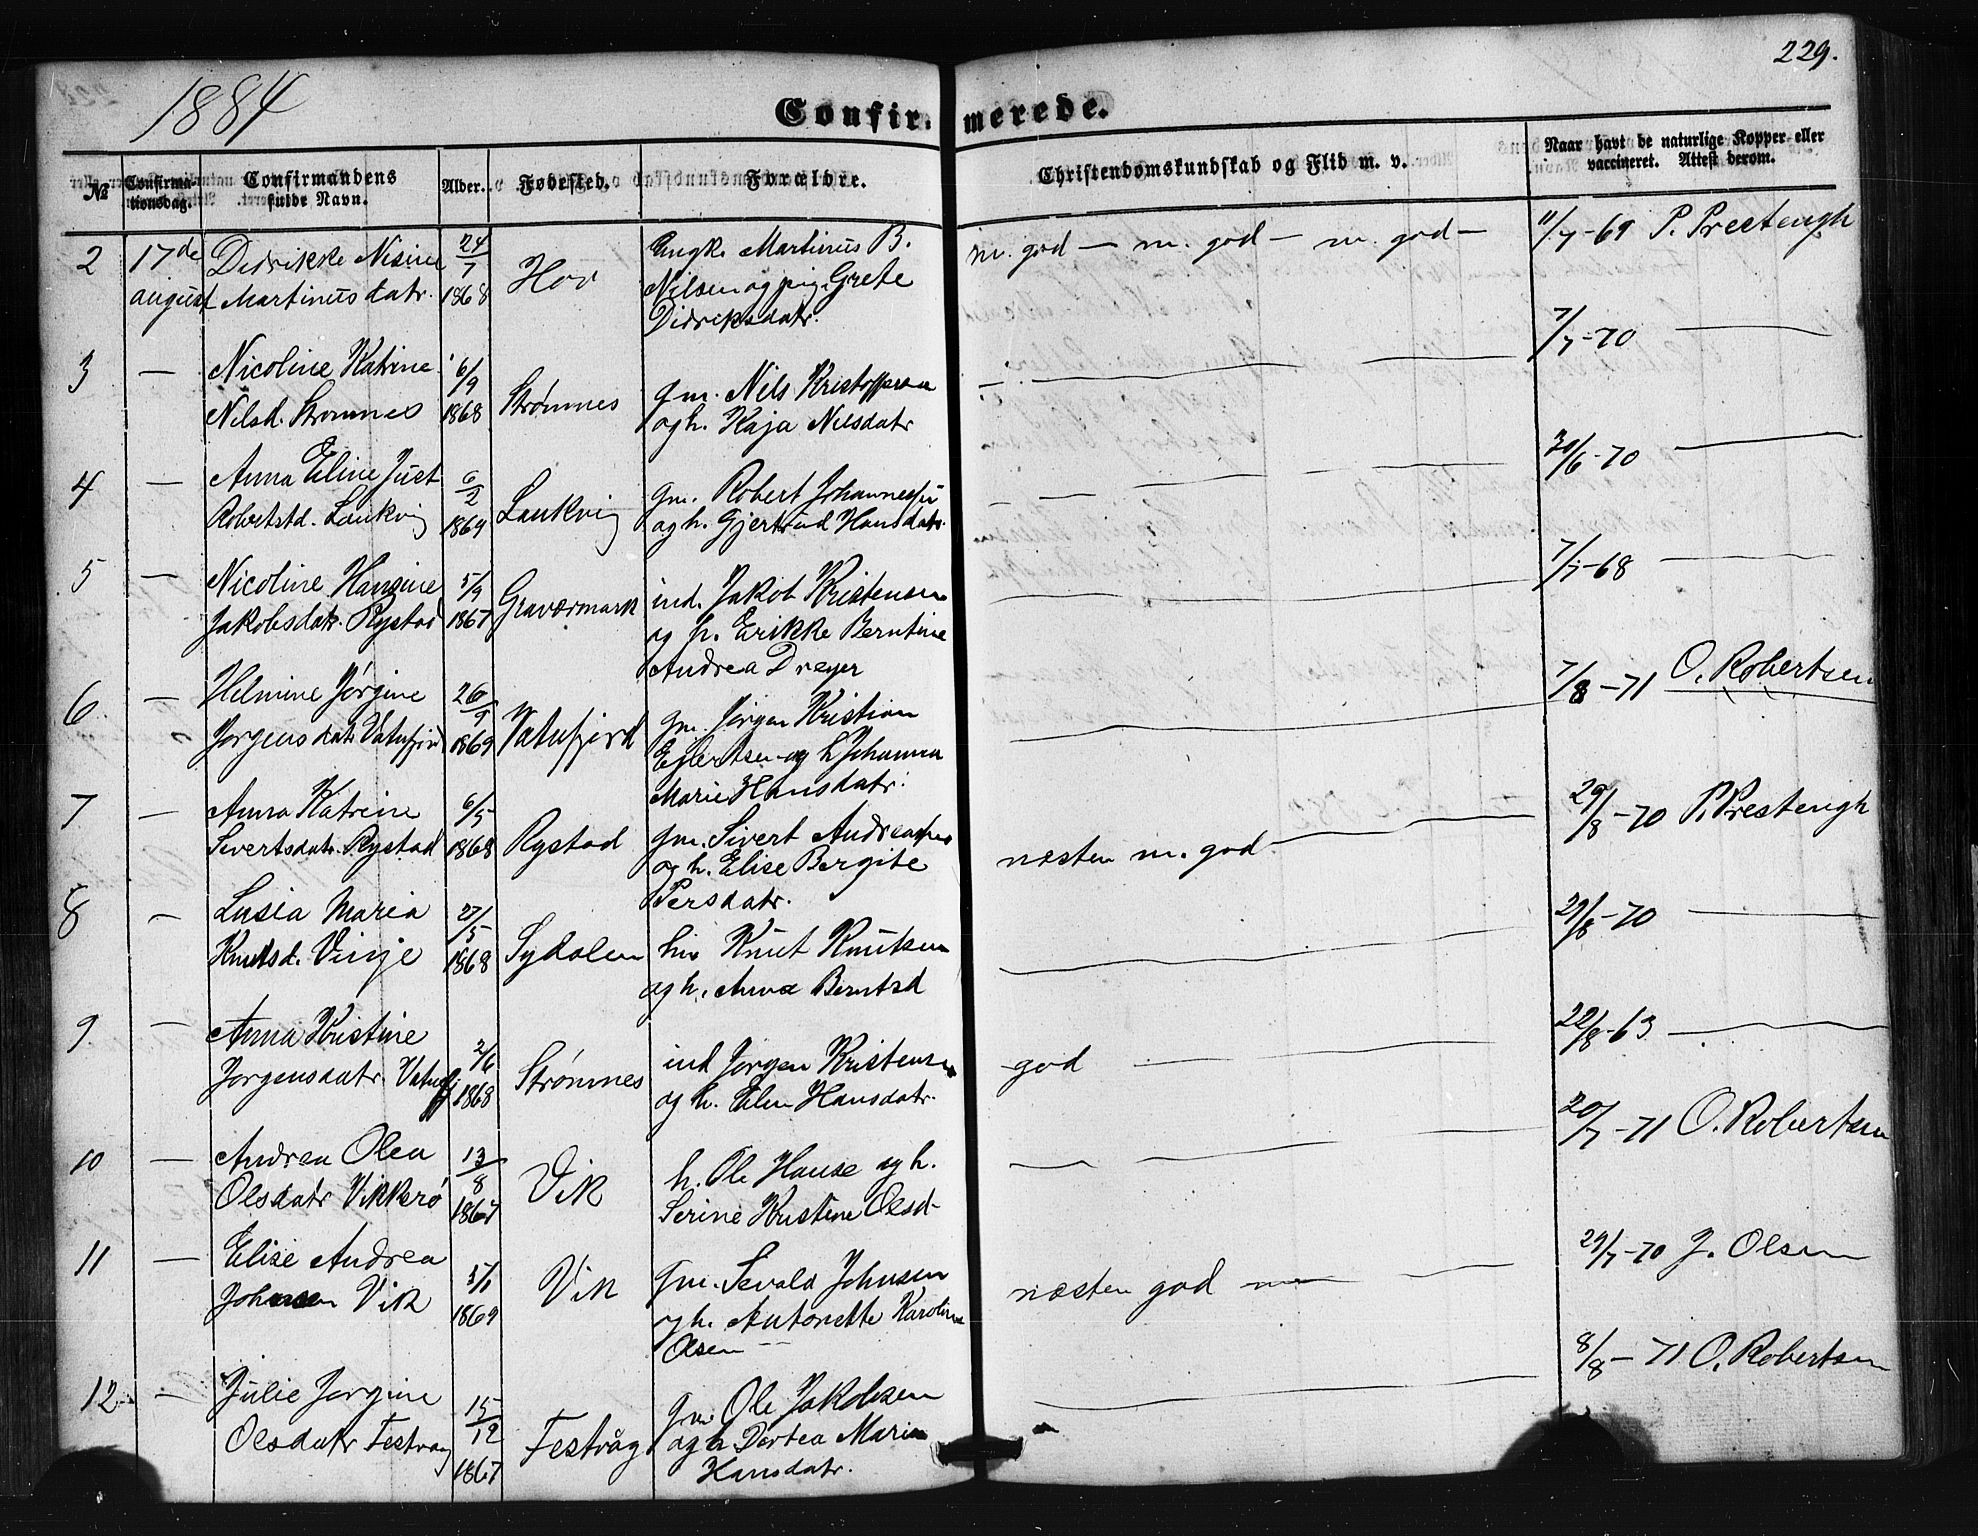 229.
1884
Confir. merede.
№ Confirmationsdag. Confirmandens fulde Navn. Alder. Fødested. Forældre. Christendomskundskab og Flid m. v. Naar havt de naturlige Kopper eller vaccineret. Attest derom.
2 17de Didrikke Nisine 24/7 Hov Ungk. Martinus B. m. god — m. god — m. god — 11/7-69 P. Prestengh
august Martinusdatr. 1868 Nilsen og pig. Grete
Didriksdatr.
3 — Nicoline Katrine 6/9 Strømnes gm. Nils Kristoffersen 7/7-70 —
Nilsd. Strømnes 1868 og h. Kaja Nilsdatr
4 — Anna Eline Just 6/2 Laukvig gm. Robert Johannessen 30/6-70 —
Robertsd. Laukvig 1869 og h. Gjertrud Hansdatr.
5 — Nicoline Hansine 5/9 Gravermark ind. Jakob Kristensen 7/7-68 —
Jakobsdatr. Rystad 1867 og h. Erikke Berntine
Andrea Dreyer
6 — Helmine Jørgine 26/9 Vatnfjord gm. Jørgen Kristian 7/8-71 O. Robertsen
Jørgensdatr Vatnfjord 1869 Ejlertsen og h Johanna
Marie Hansdatr.
7 — Anna Katrine 6/5 Rystad gm. Sivert Andreassen næsten m. god — 29/8-70 P. Prestengh
Sivertsdatr. Rystad 1868 og h. Elise Bergite
Persdatr.
8 — Lusia Maria 27/5 Sydalen Knut Knutsen 29/8-70 —
Knutsd. Vinje 1868 og h. Anna Berntsd
9. — Anna Kristine 2/6 Strømnes ind Jørgen Kristensen god — 22/8-63 —
Jørgensdatr. Vatnfj 1868 og h. Elen Hansdatr.
10 — Andrea Olea 13/8 Vik h. Ole Hanse og h. 20/7-71 O. Robertsen
Olsdatr Vikkerø 1867 Serine Kristine Olsd-
11 — Elise Andrea Vik gm. Sevald Johnsen næsten god 29/7-70 J. Olsen
Johnsen Vik 1869 og h. Antonette Karoline
Olsen
12 — Julie Jørgine 15/12 Festvåg gm. Ole Jakobsen 8/8-71 O. Robertsen
Olsdatr Festvåg 1867 og h Dortea Marie
Hansdatr.